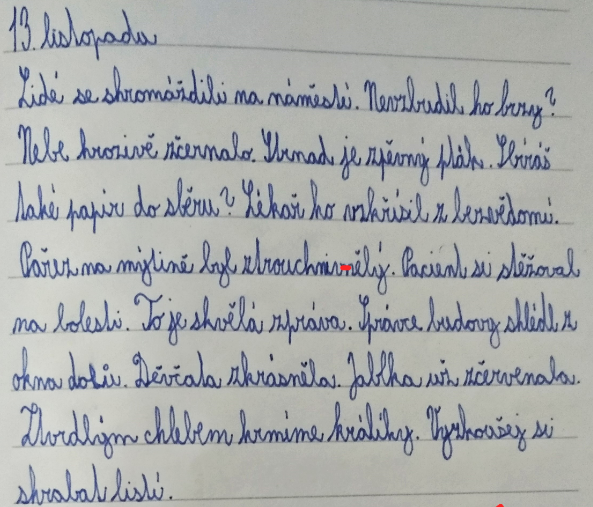 13. listopadu
Lidé se shromáždili na náměstí. Nevzbudil ho brzy?
Nebe hrozivě zčernalo. Strnad je zpěvný pták. Sbíráš
také papír do sběru? Lékař ho vzkřísil z bezvědomí.
Pařez na mýtině byl ztrouchnivnělý. Pacient si stěžoval
na bolesti. To je skvělá zpráva. Správce budovy shlédl z
okna dolů. Děvčata zkrásněla. Jablka už zčervenala.
Ztvrdlým chlebem krmíme králíky. Vyzkoušej si
shrabat listí.